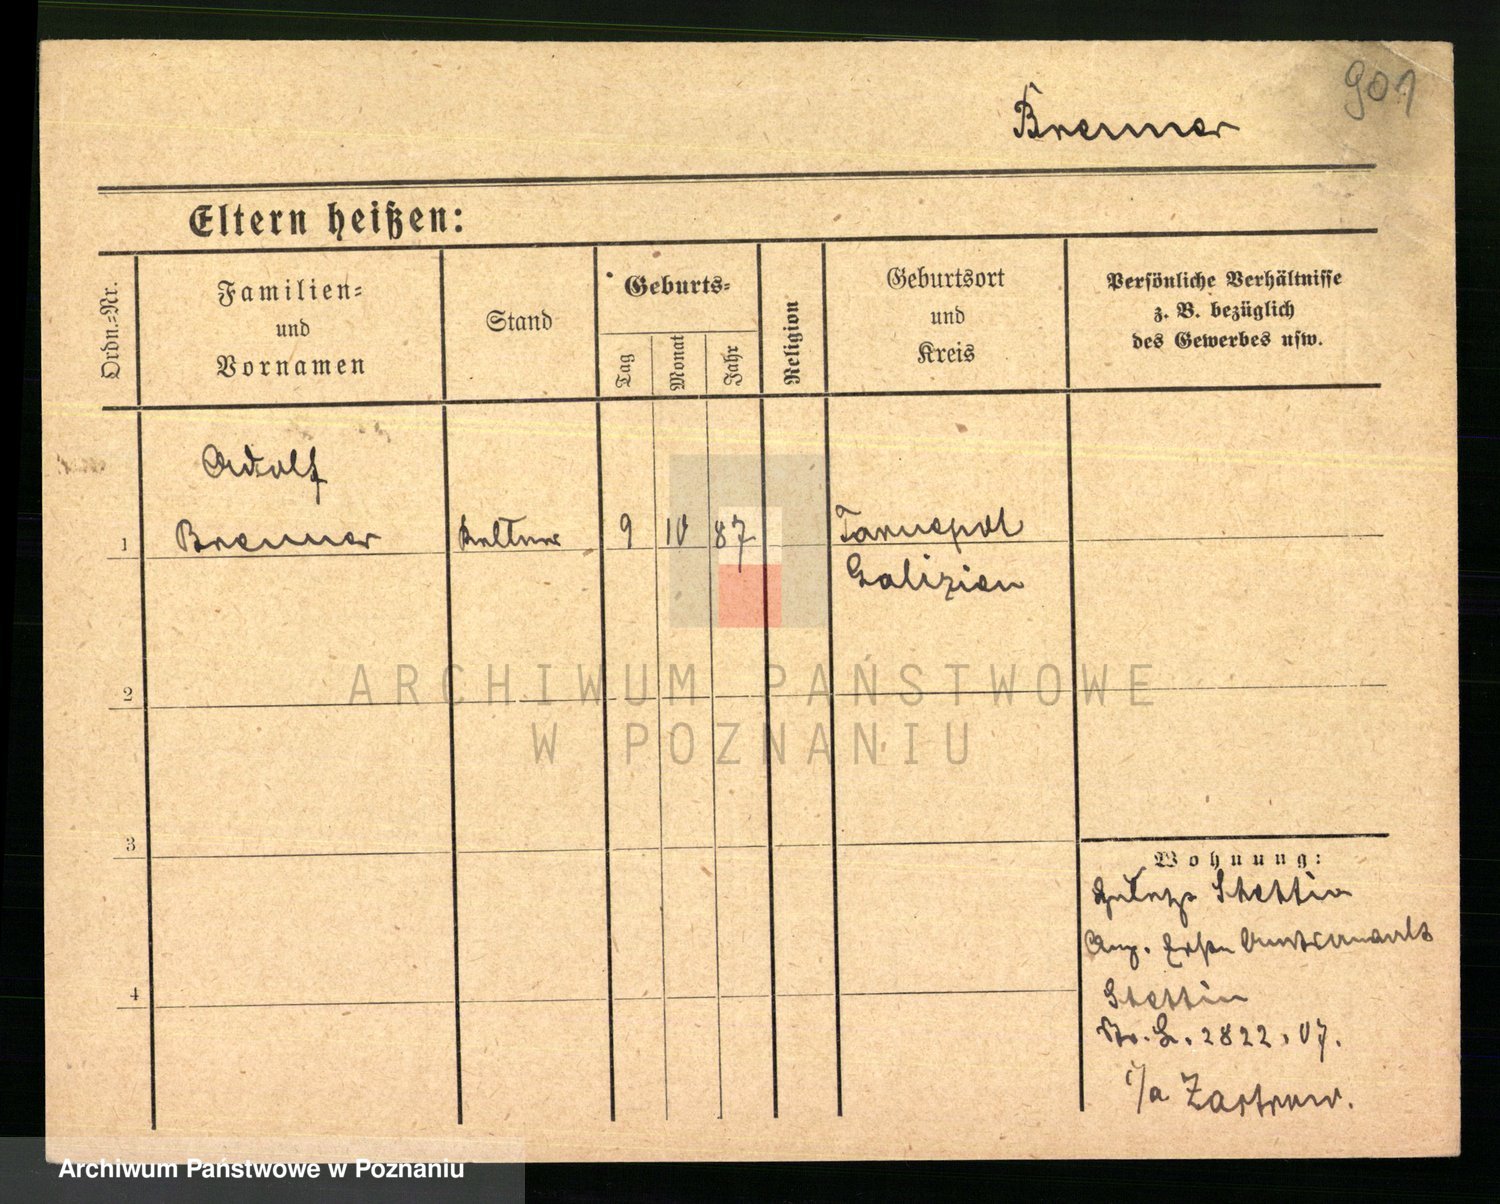 901
Brenner
Eltern heißen:
Ordn.-Nr.
Familien-
und
Vornamen
Stand
Geburts-
Tag
Monat
Jahr
Religion
Geburtsort
und
Kreis
Persönliche Verhältnisse
z. B. bezüglich
des Gewerbes usw.
Adolf
1 Brenner Kellner 9 10 87 Tarnopol
Galizien
ARCHIWUM PAŃSTWOWE
W POZNANIU
2
3
4
Wohnung:
zuletzt Stettin
Anz. Erster Amtsanwalt
Stettin
2822.07.
i/a Zastrow.
Archiwum Państwowe w Poznaniu